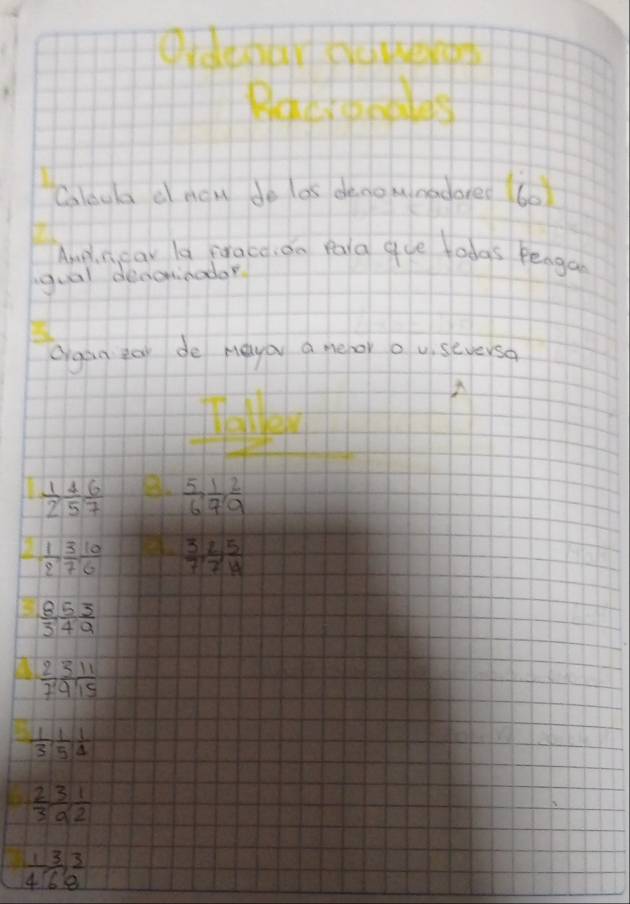 Ordenar numeros
Racionales
1.
Calcula el mcm de los denominadores (60)
2.
Amplificar la fracción para que todas tengan
igual denominador.
3.
Organizar de mayor a menor o viseversa
Taller
1. 1/2, 4/5, 6/7 8. 5/6, 1/7, 2/9
2. 1/2, 3/7, 10/6 9. 3/7, 2/7, 5/14
3. 8/3, 5/4, 3/9
4. 2/7, 3/9, 11/15
5. 1/3, 1/5, 1/4
6. 2/3, 3/9, 1/2
7. 1/4, 3/6, 3/8